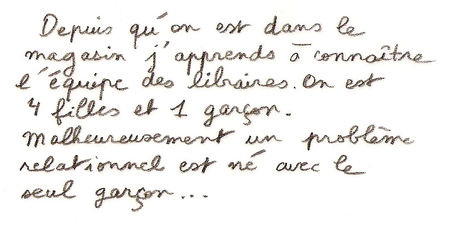 Depuis qu'on est dans le
magasin j'apprends à connaître
l'équipe des libraires. On est
4 filles et 1 garçon.
Malheureusement un problème
relationnel est né avec le
seul garçon...